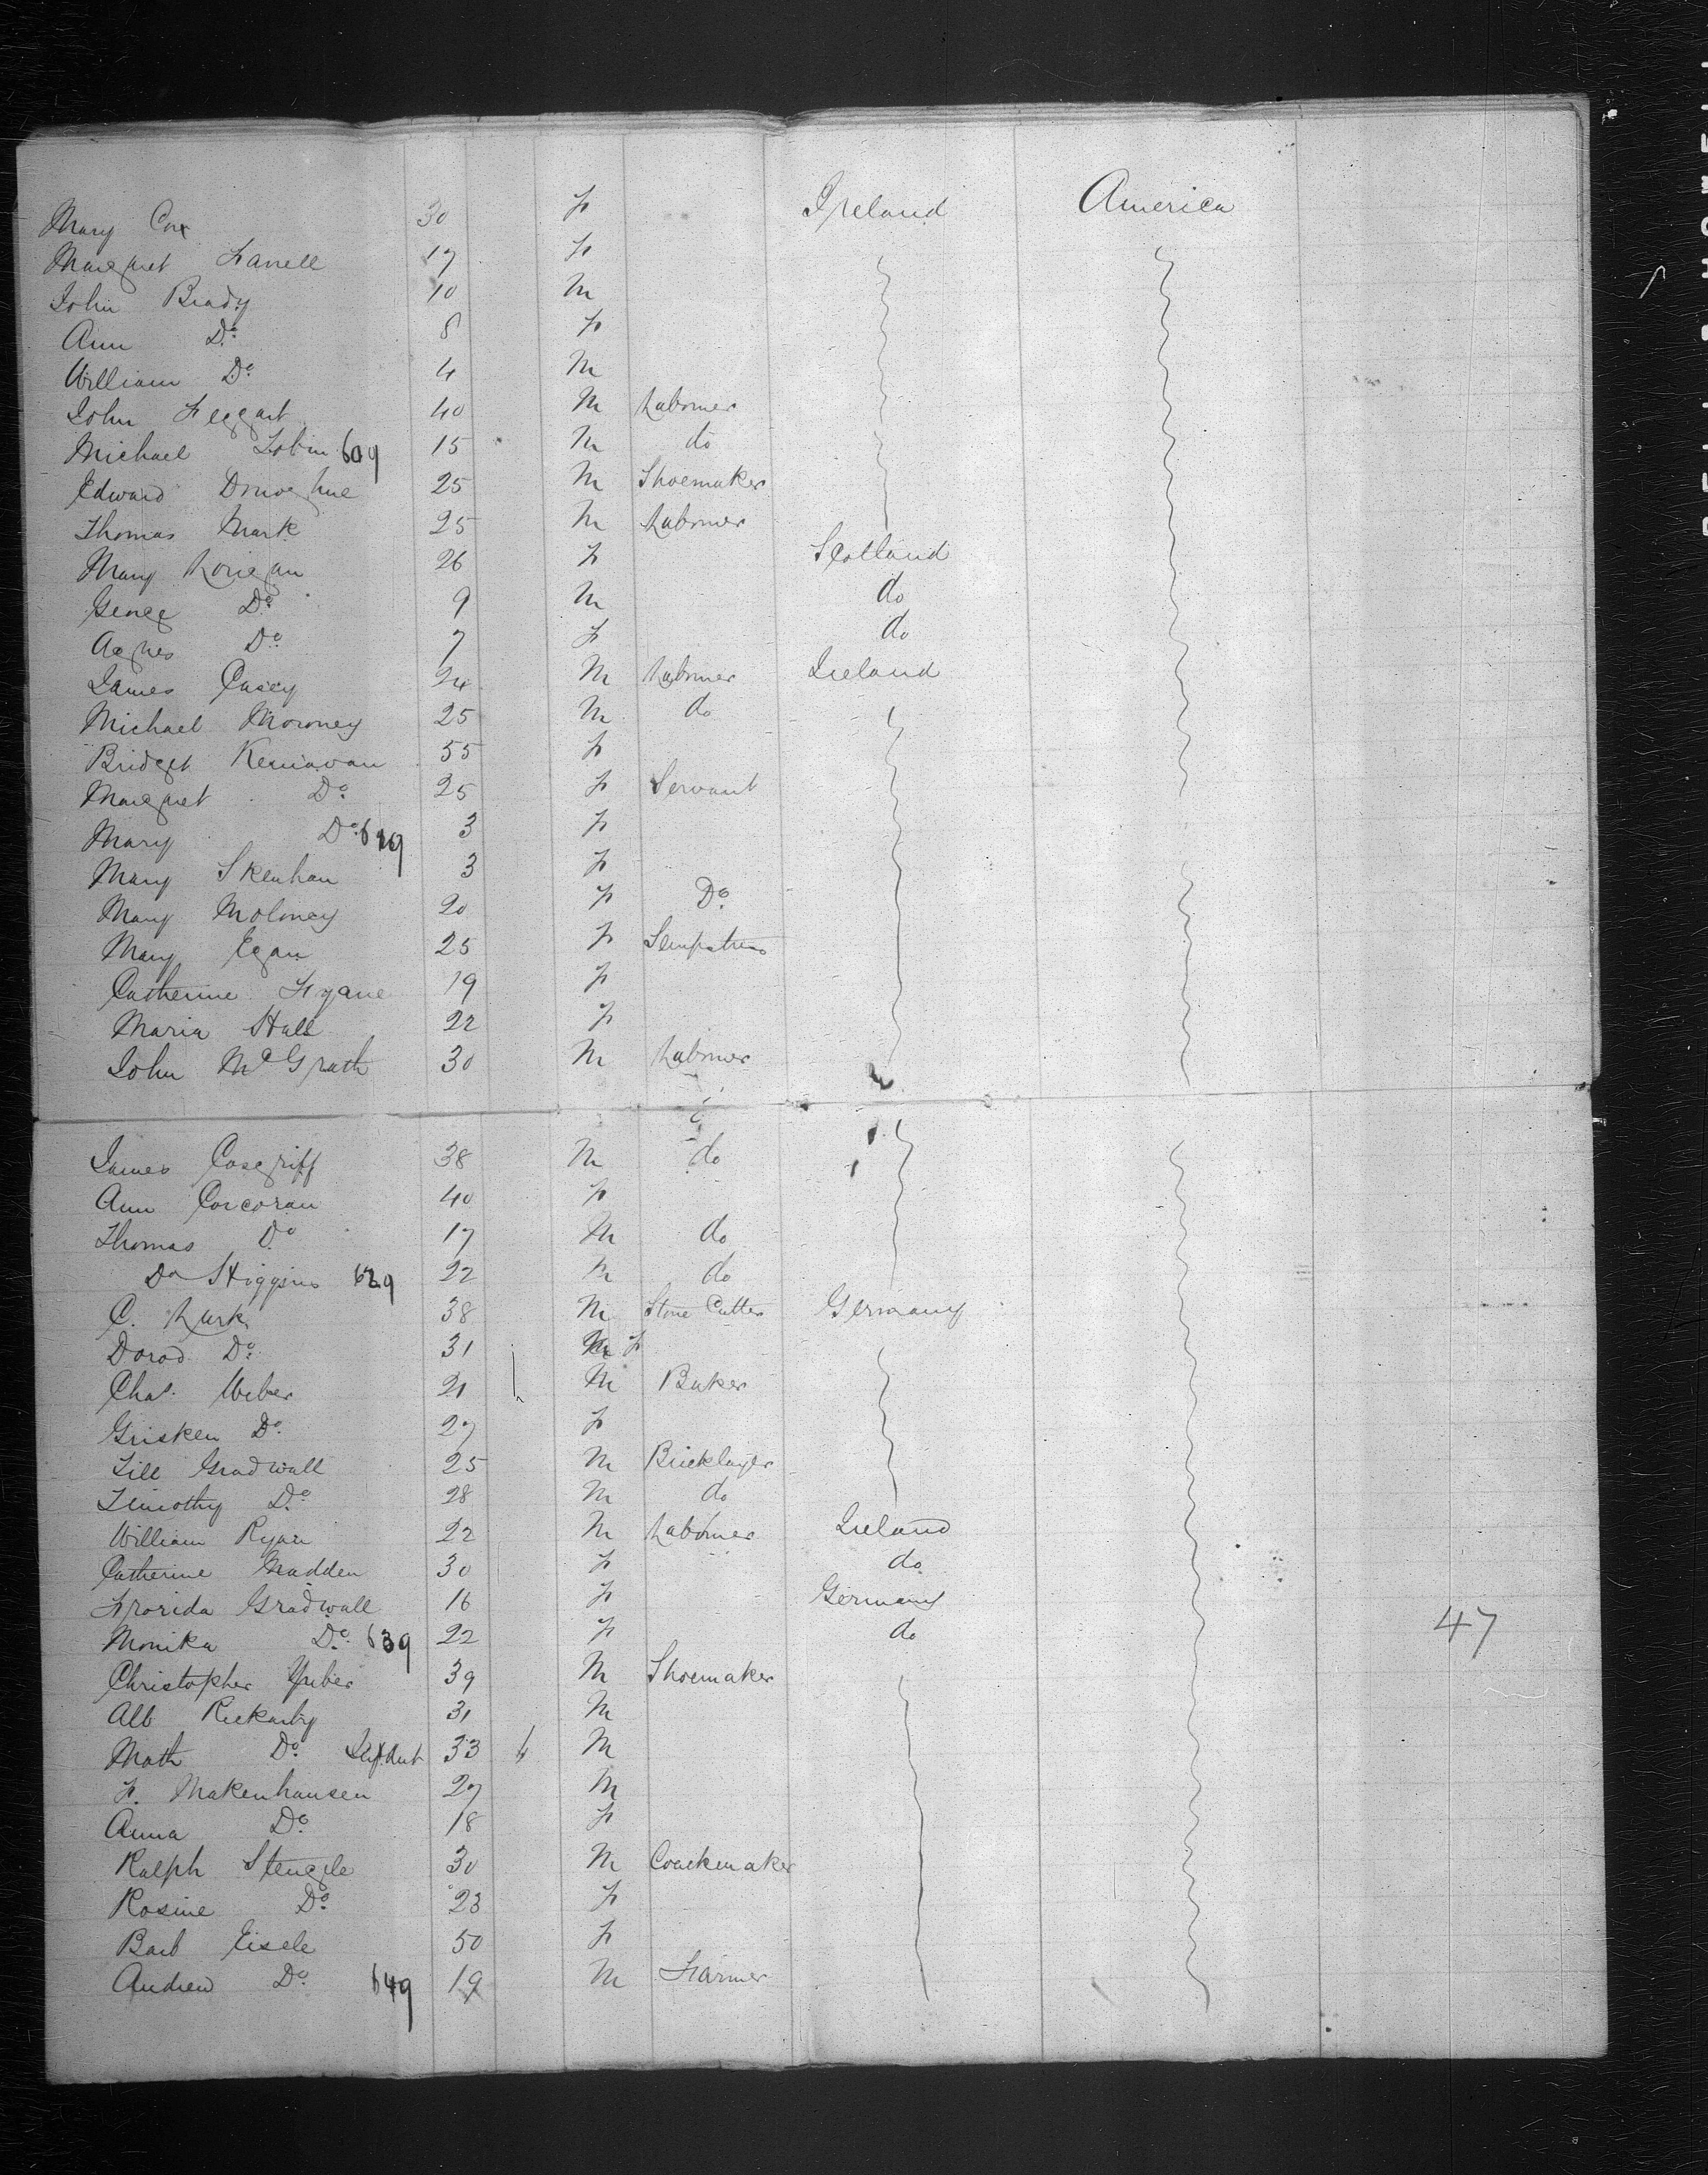 Mary Cox 30 F Ireland America
Margaret Farrell 17 F
John Brady 10 M
Ann Do 8 F
William Do 4 M
John Heggart 40 M Labourer
Michael Tobin 609 15 M do
Edward Donoghue 25 M Shoemaker
Thomas Mark 25 M Labourer
Mary Lonegan 26 F Scotland
George Do 9 M do
Agnes Do 7 F do
James Casey 24 M Labourer Ireland
Michael Moroney 25 M do
Bridget Kernavan 55 F
Margaret Do 25 F Servant
Mary Do 619 3 F
Mary Skenhan 3 F
Mary Moloney 20 F Do
Mary Egan 25 F Sempstress
Catherine 19 F
Maria Hall 22 F
John McGrath 30 M Labourer
James Cosgriff 38 M do
Ann Corcoran 40 F
Thomas Do 17 M do
Do Higgins 629 22 M do
C. Lark 38 M Stone Cutter Germany
Dorod Do 31 F
Chas. Weber 21 M Baker
Grisken Do 27 F
Till Gradwall 25 M Bricklayer
Timothy Do 28 M do
William Ryan 22 M Labourer Ireland
Catherine Madden 30 F do
Frorida Gradwall 16 F Germany
Monika Do 639 22 F do
Christopher 39 M Shoemaker
Alb Reckarby 31 M
Math Do 33 M
F. Makenhausen 27 M
Anna Do 18 F
Ralph Stengele 30 M Coachmaker
Rosine Do 23 F
Barb Eisele 50 F
Andrew Do 649 19 M Farmer
47